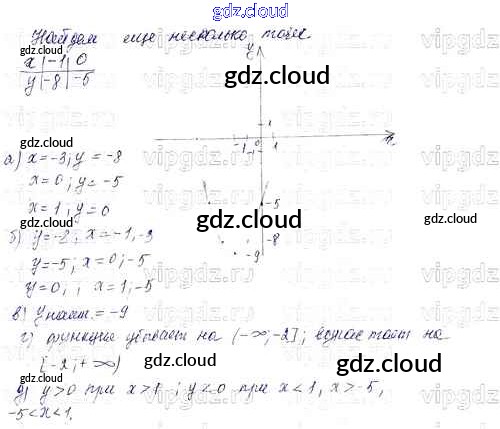 gdz.cloud
Найдем еще несколько точек.
x | -1 | 0
y | -8 | -5
y
1
-1 0 1
-1
x
-5
-8
-9
а) x=-3; y=-8
x=0; y=-5
x=1; y=0
б) y=-8; x=-1,-3
y=-5; x=0;-5
y=0, ; x=1,-5
в) y наим.=-9
г) функция убывает на (-∞;-2]; возрастает на
[-2;+∞)
д) y>0 при x>1 ; y<0 при x<1, x>-5,
-5<x<1.
gdz.cloud
gdz.cloud
gdz.cloud
gdz.cloud
gdz.cloud
gdz.cloud
gdz.cloud
gdz.cloud
gdz.cloud
vipgdz.com